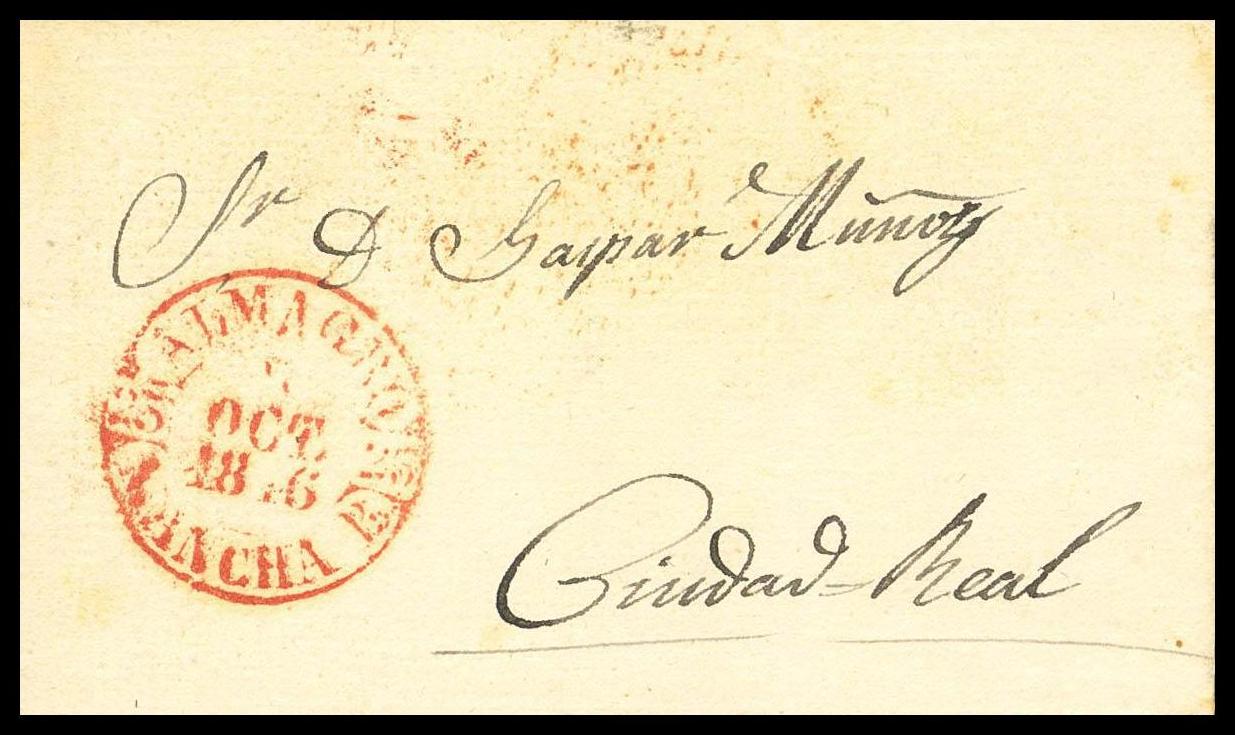 Sr D Gaspar Muñoz
ALMAGRO
OCT.
18 46
MANCHA
Ciudad-Real